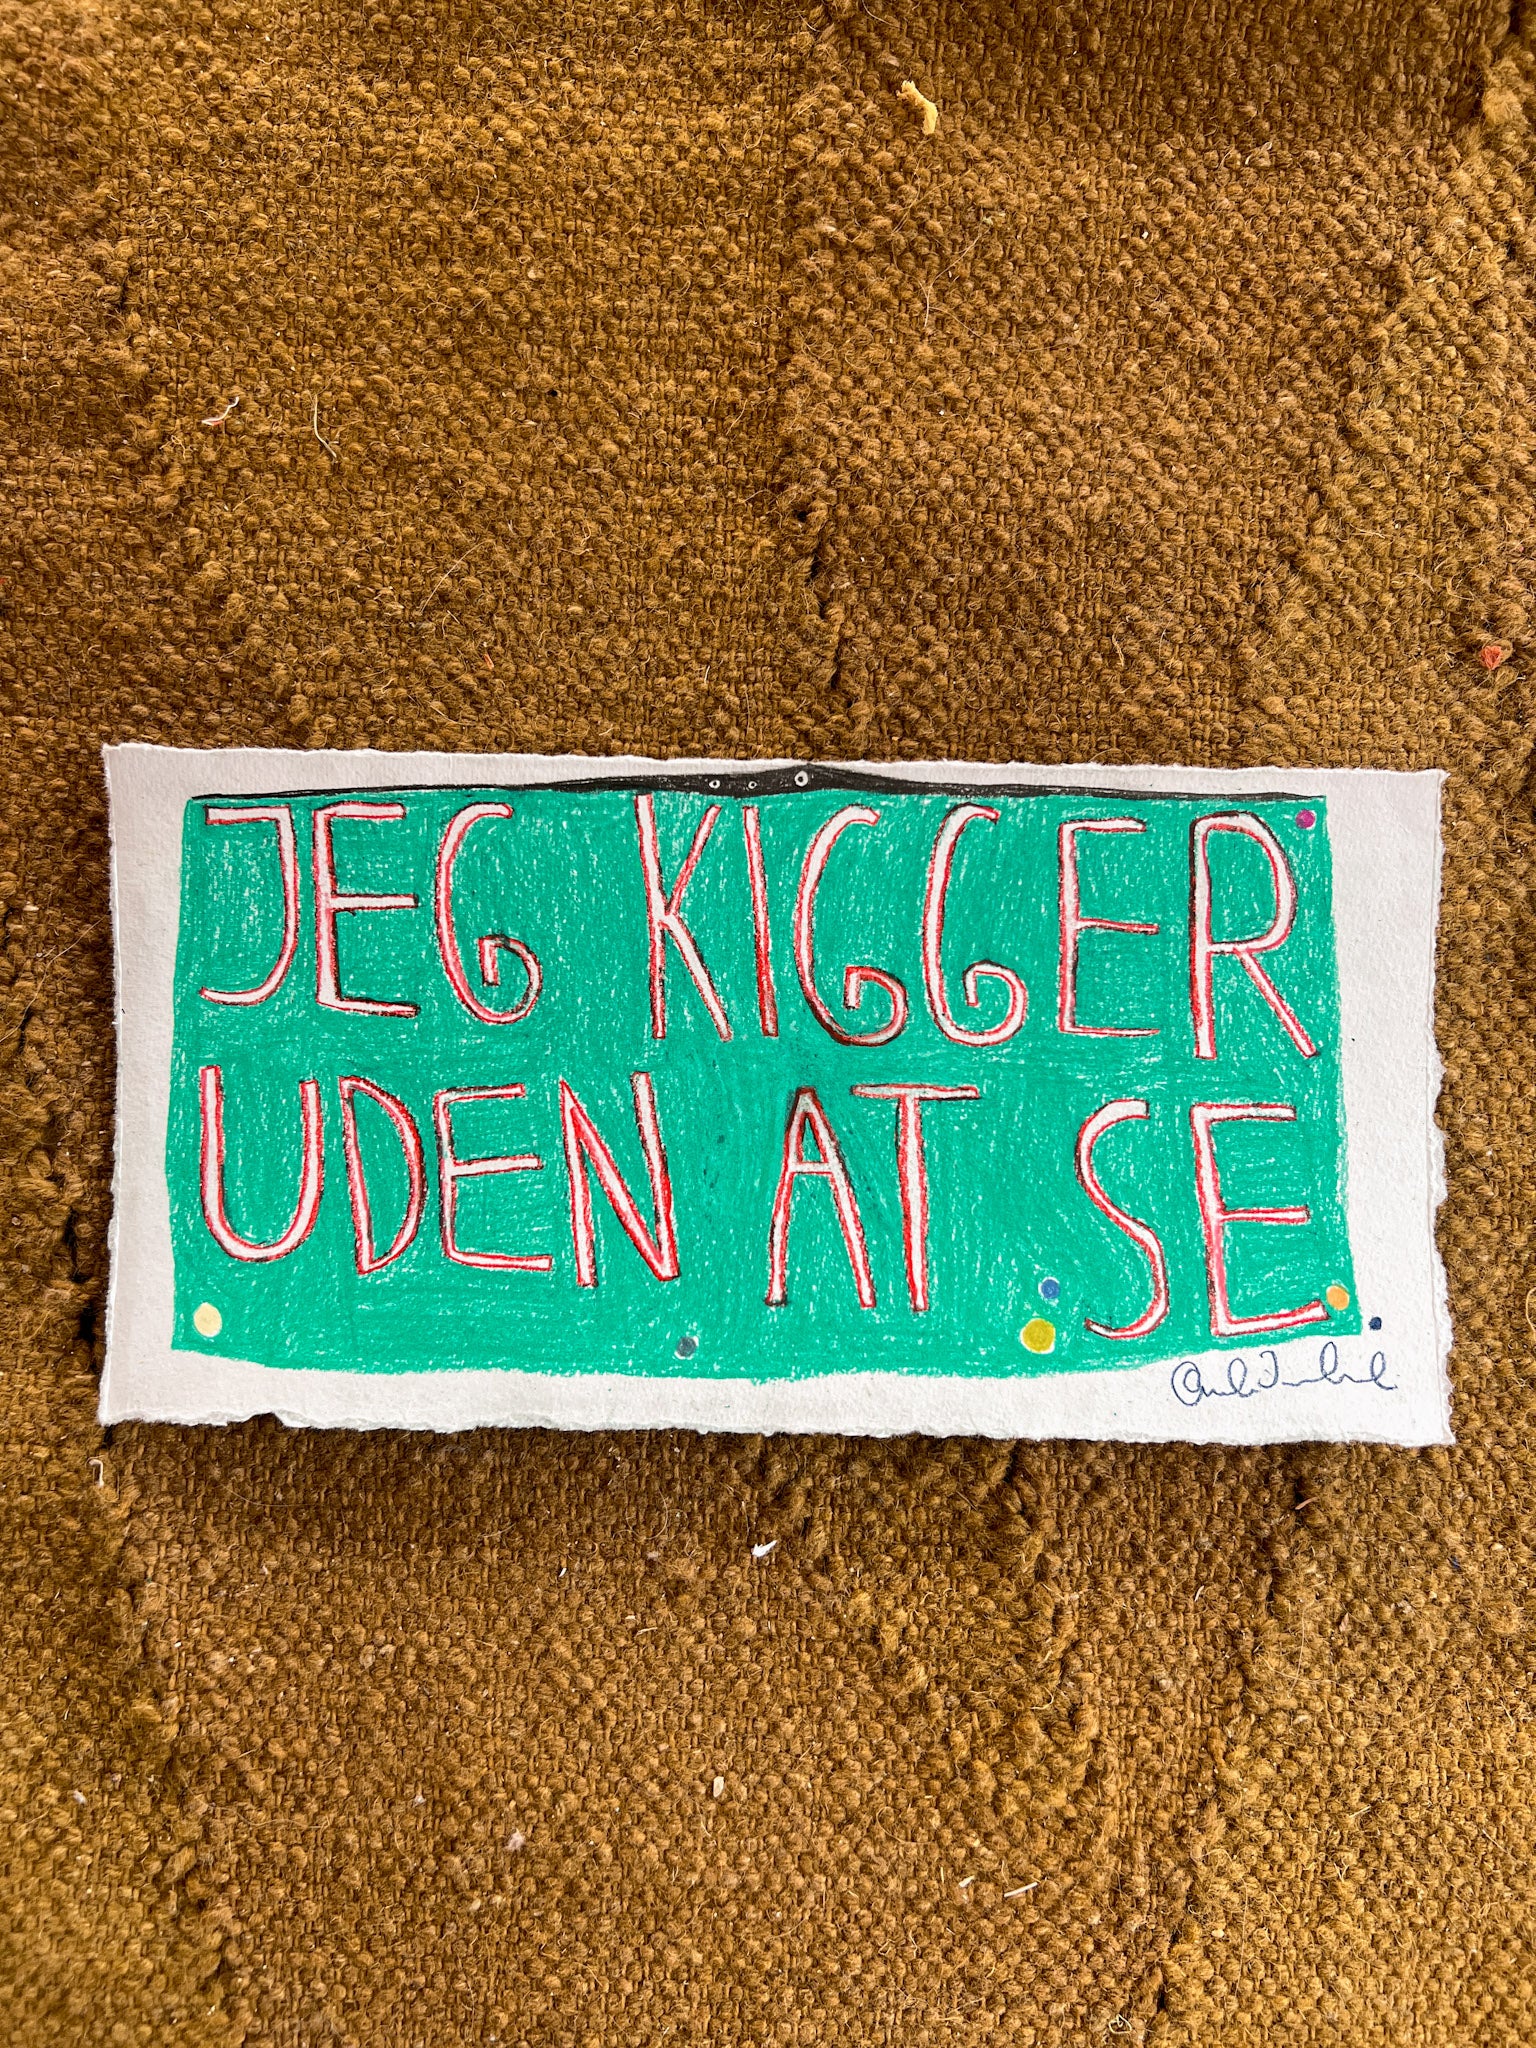 JEG KIGGER
UDEN AT SE